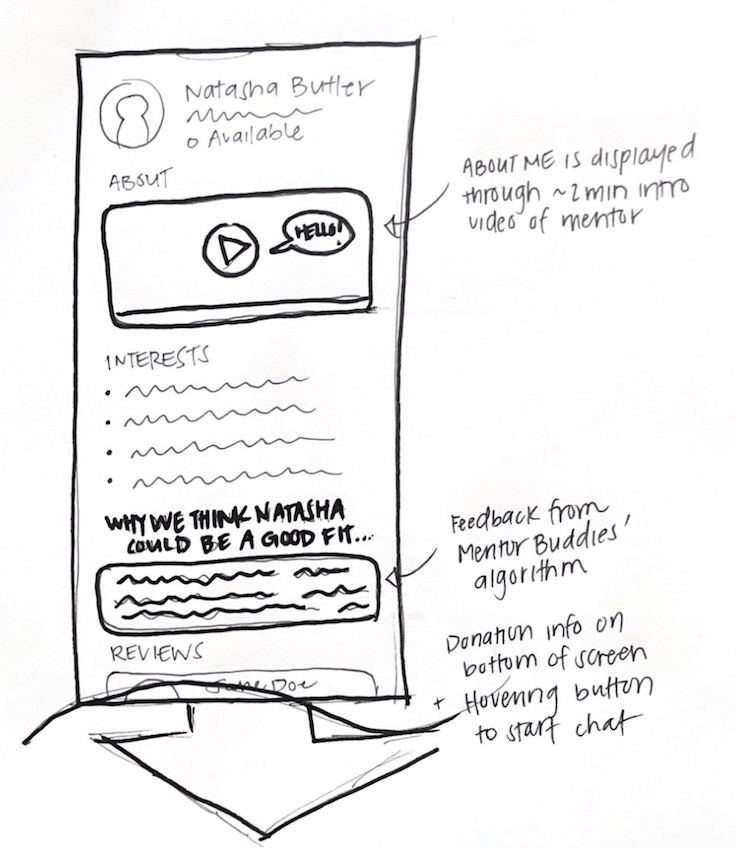 Natasha Butler
o Available
ABOUT
HELLO!
ABOUT ME IS displayed
through ~2min intro
video of mentor
INTERESTS
WHY WE THINK NATASHA
COULD BE A GOOD FIT...
Feedback from
Mentor Buddies'
algorithm
REVIEWS
Jane Doe
Donation info on
bottom of screen
+ Hovering button
to start chat